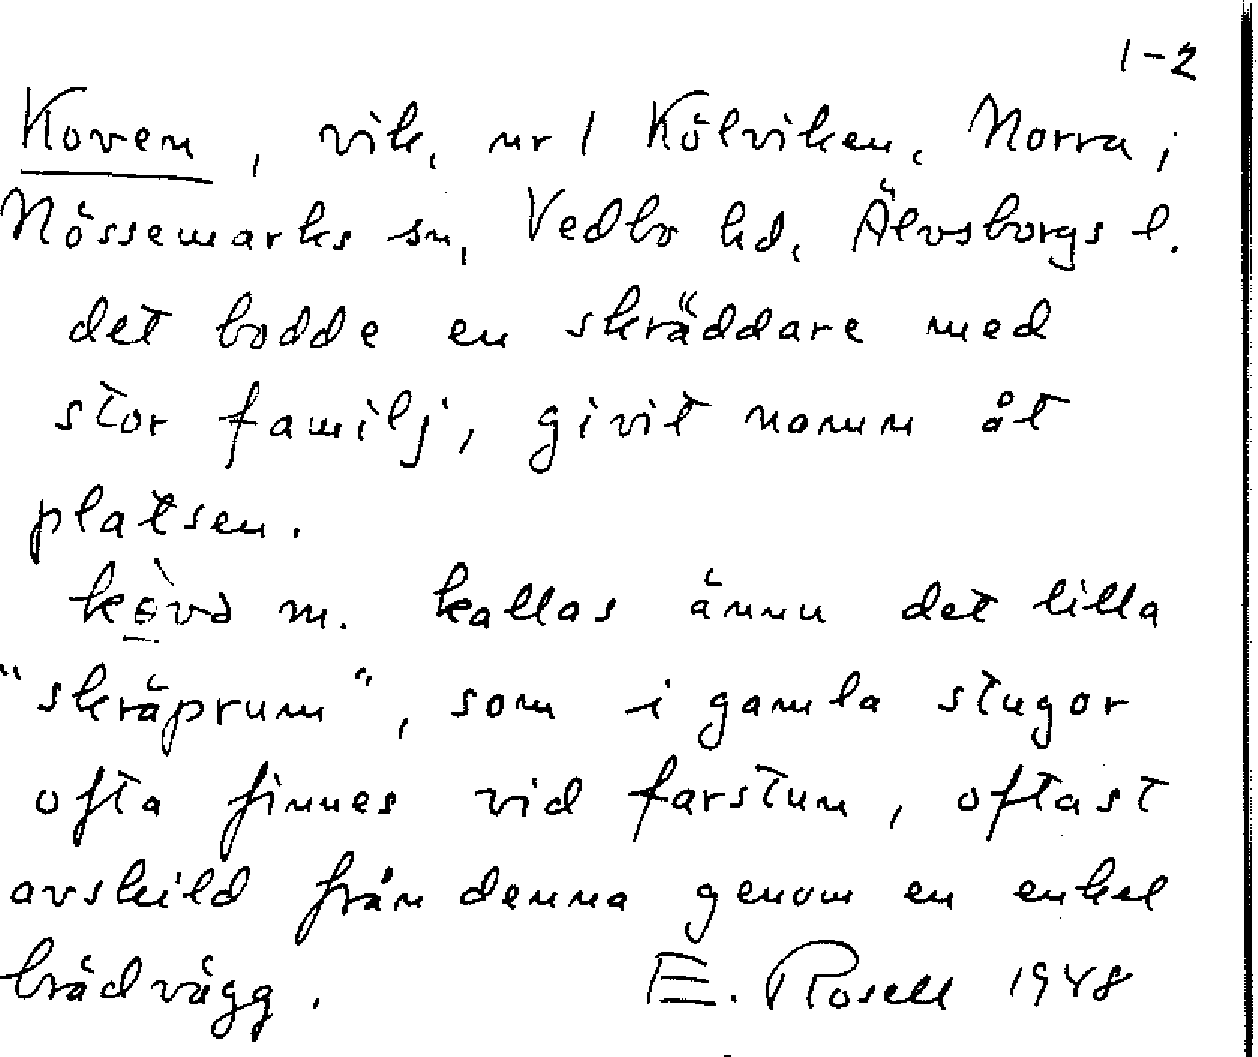 1-2
Koven, vik, nr 1 Kölviken, Norra,
Nössemarks sn, Vedbo hd, Älvsborgs l.
det bodde en skräddare med
stor familj, givit namn åt
platsen.
m. kallas ännu det lilla
"skräprum", som i gamla stugor
ofta finnes vid farstun, oftast
avskild från denna genom en enkel
brädvägg. E. Rosell 1948